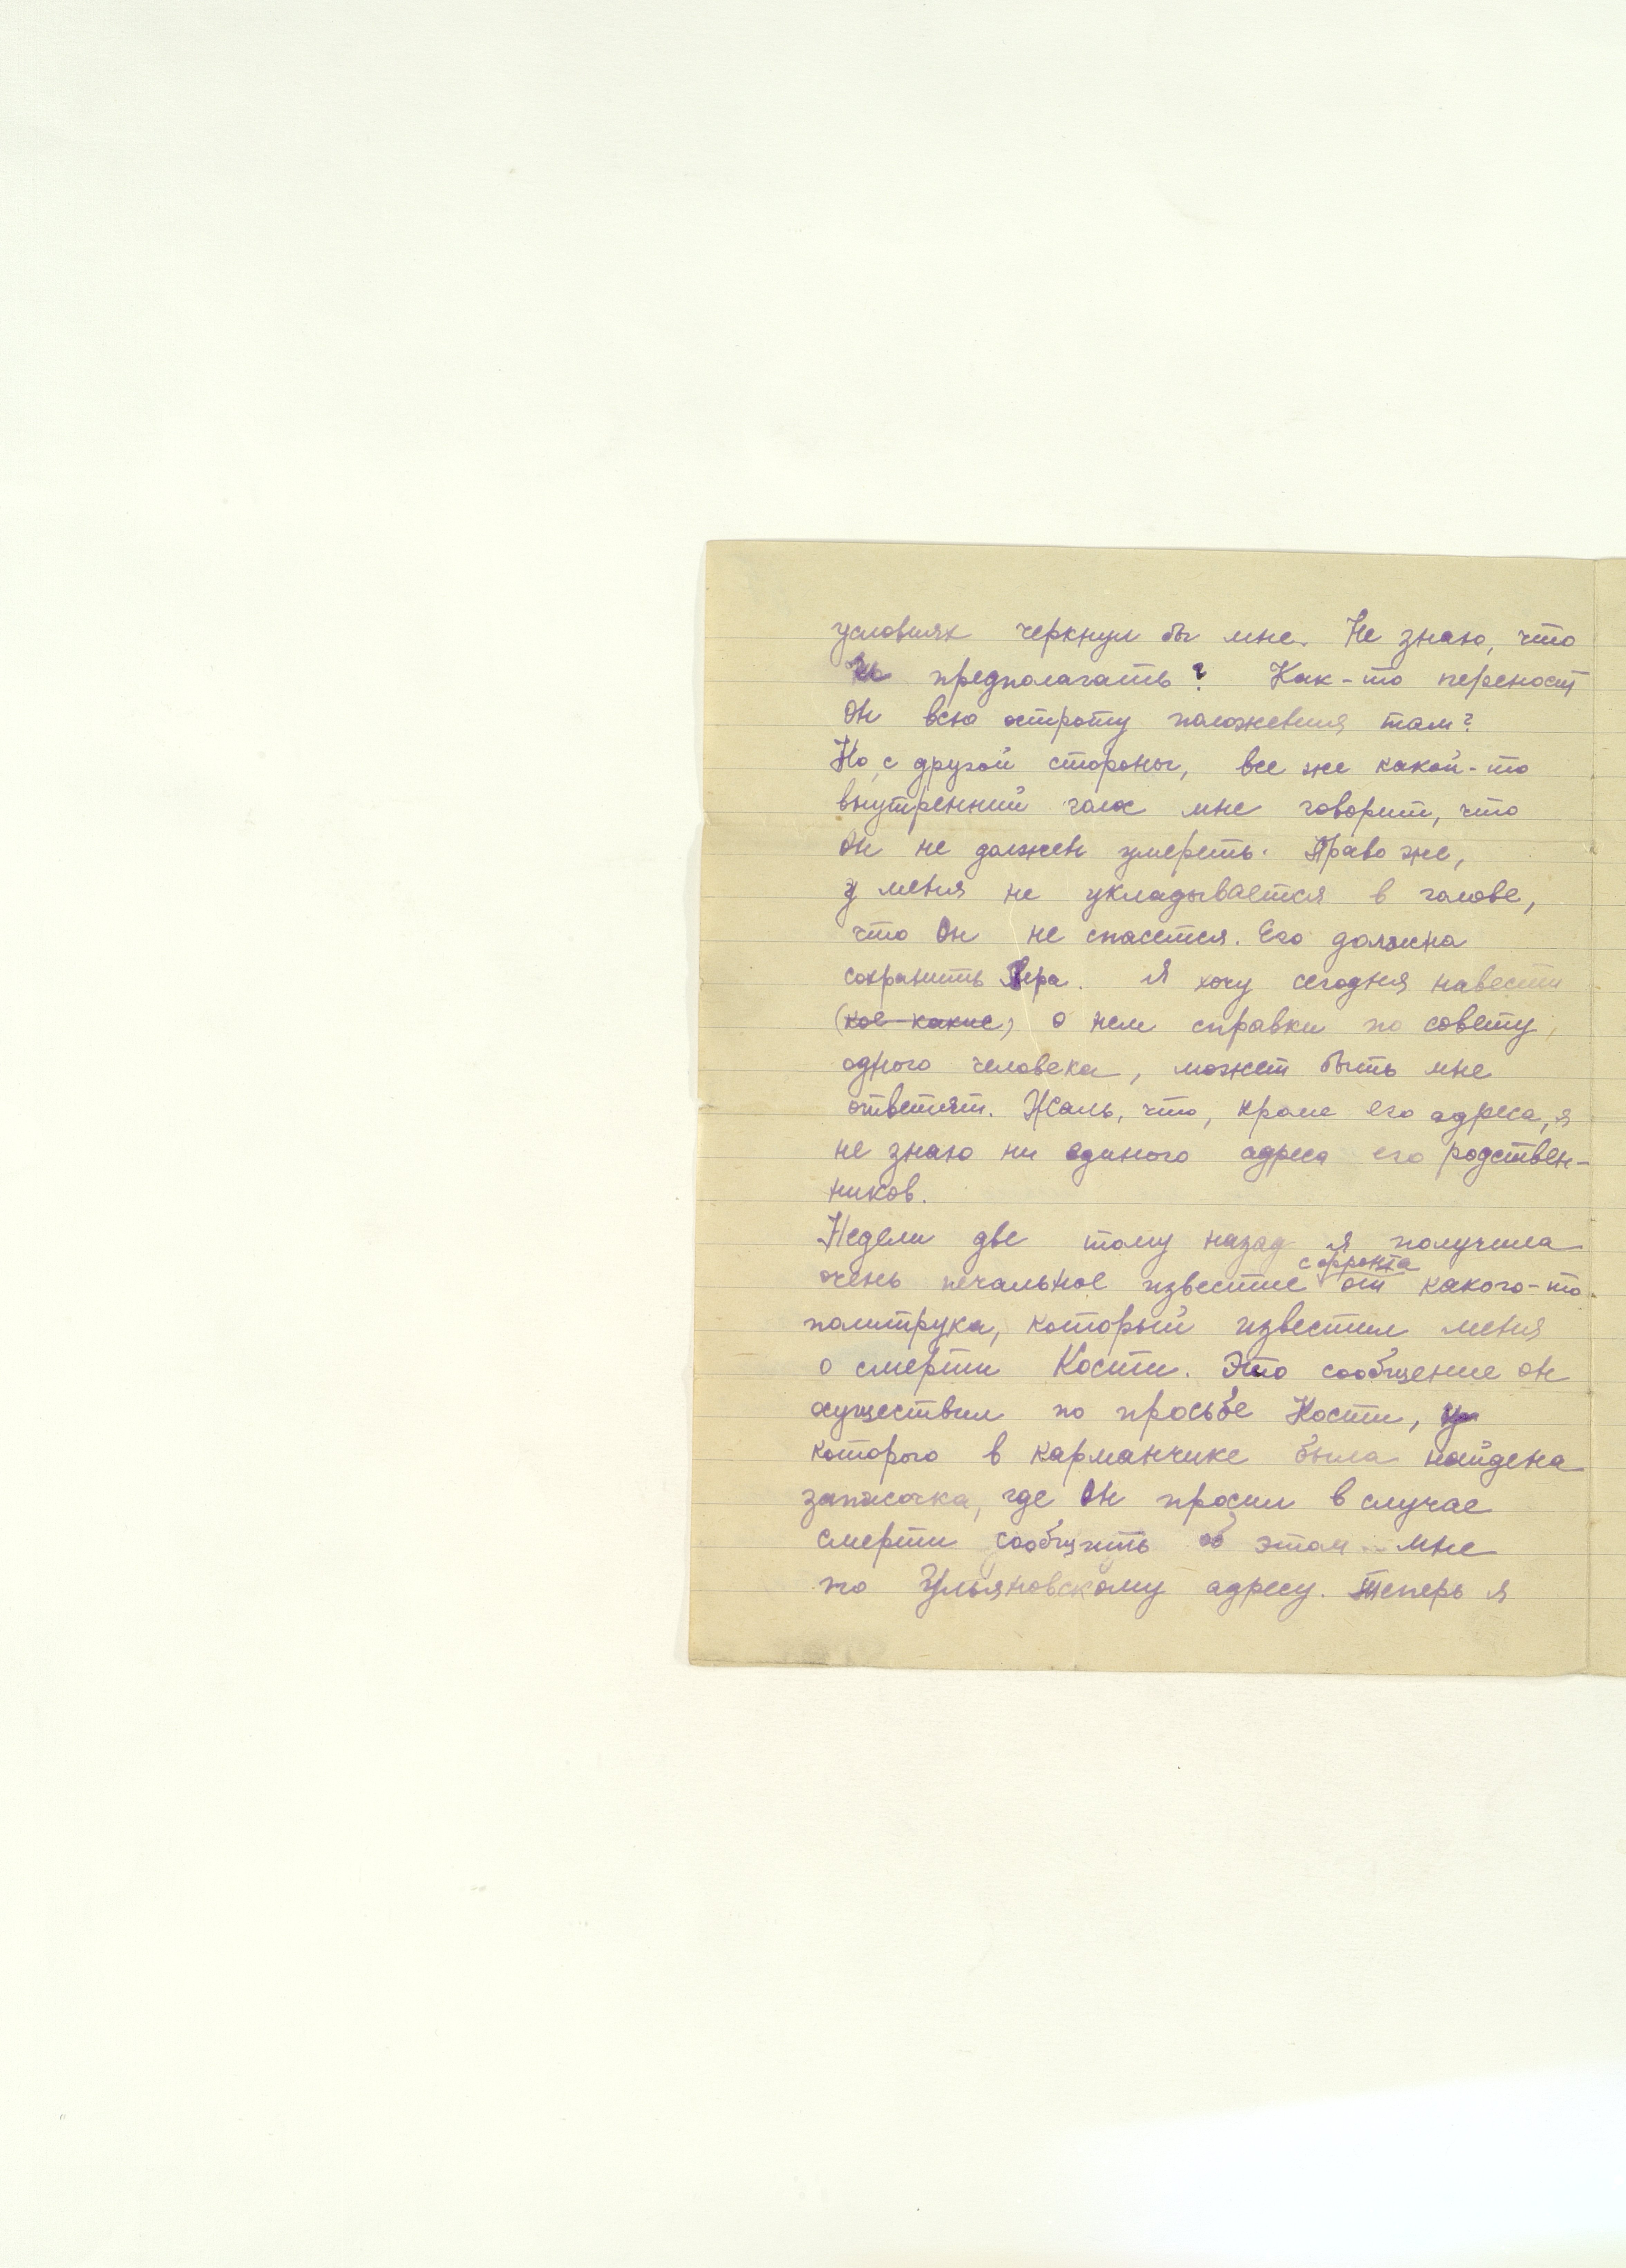 условиях черкнул бы мне. Не знаю, что
и предполагать? Как-то переносит
Он всю остроту положения там?
Но, с другой стороны, все же какой-то
внутренний голос мне говорит, что
Он не должен умереть. Право же,
у меня не укладывается в голове,
что Он не спасется. Его должна
сохранить Вера. Я хочу сегодня навести
(кое-какие) о нем справки по совету,
одного человека, может быть мне
ответят. Жаль, что, кроме его адреса, я
не знаю ни единого адреса его родствен-
ников.
Недели две тому назад я получила
с фронта
очень печальное известие от какого-то
политрука, который известил меня
о смерти Кости. Это сообщение он
осуществил по просьбе Кости, у
которого в карманчике была найдена
записочка, где Он просил в случае
смерти сообщить об этом мне
по Ульяновскому адресу. Теперь я